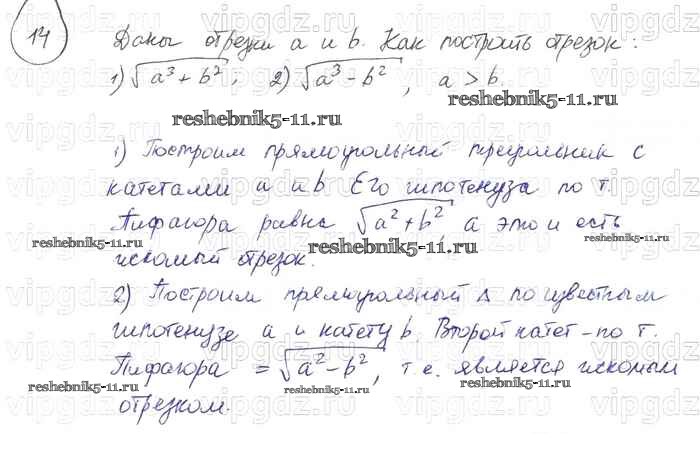 14
Даны отрезки a и b. Как построить отрезок:
1) √a³ + b² ; 2) √a³ - b² , a > b.
reshebnik5-11.ru
reshebnik5-11.ru
1) Построим прямоугольный треугольник с
катетами a и b Его гипотенуза по т.
Пифагора равна √a² + b² , а это и есть
reshebnik5-11.ru
reshebnik5-11.ru
reshebnik5-11.ru
искомый отрезок.
2) Построим прямоугольный Δ по известным
гипотенузе a и катету b. Второй катет - по т.
Пифагора = √a² - b² , т.е. является искомым
reshebnik5-11.ru
reshebnik5-11.ru
отрезком.
vipgdz.ru